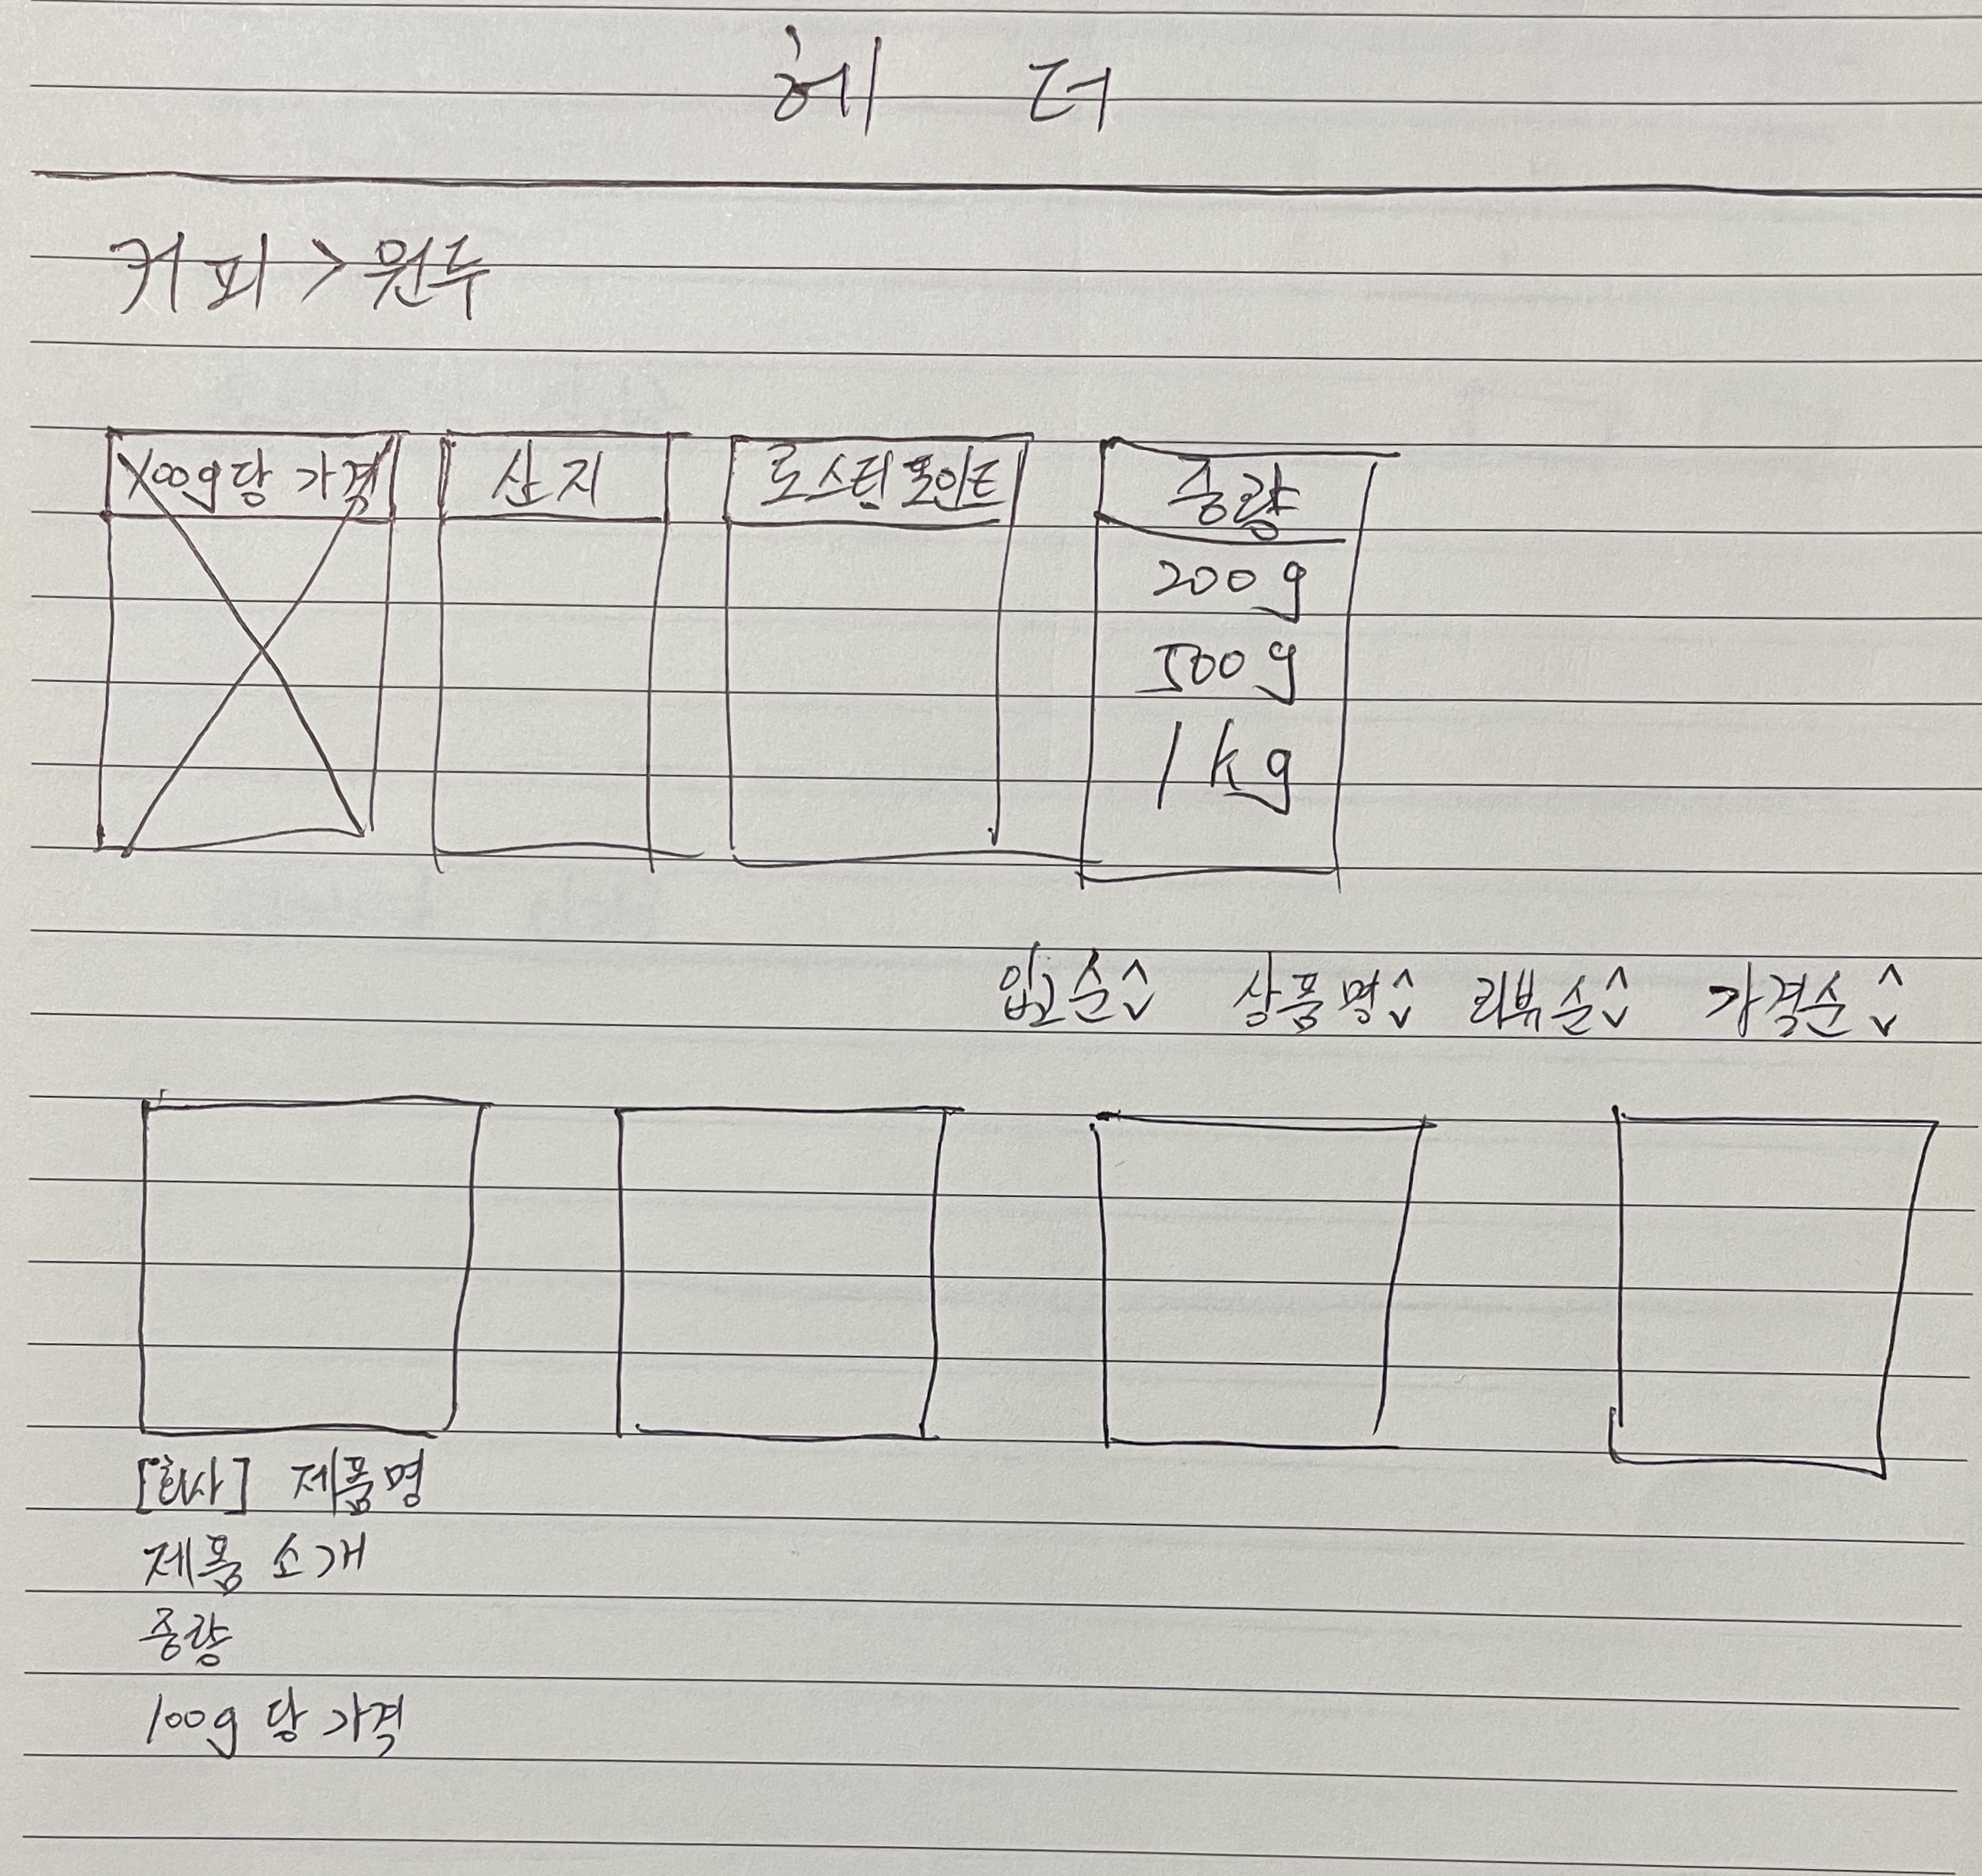 헤 더
커피 > 원두
100g당 가격 산지 로스팅 포인트 중량
200g
500g
1kg
입고순 상품명 리뷰순 가격순
[회사] 제품명
제품 소개
중량
100g 당 가격